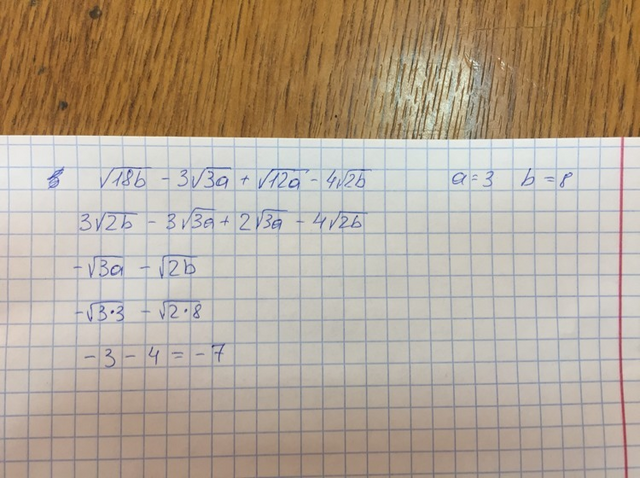 √18b - 3√3a + √12a - 4√2b a = 3 b = 8
3√2b - 3√3a + 2√3a - 4√2b
-√3a - √2b
-√3•3 - √2•8
-3 - 4 = -7